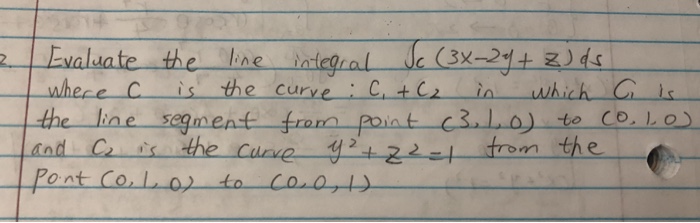 2. Evaluate the line integral ∫c (3x-2y+z)ds
where C is the curve : C₁ + C₂ in which C₁ is
the line segment from point (3,1,0) to (0,1,0)
and C₂ is the curve y²+z²=1 from the
Point (0,1,0) to (0,0,1)